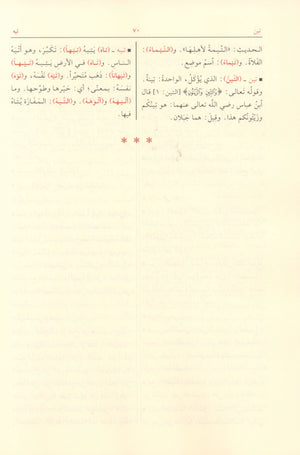 تين
٧٠
تيه
الحديث: «التِّيمة لأهلها». و(التَّيْماءُ):
الفلاة. و(تَيْماءُ): اسم موضع.
▪ تين ـ (التِّينُ): الذي يُؤْكَلُ، الواحدة: تِينَةٌ.
وقوله تعالى: ﴿وَالتِّينِ وَالزَّيْتُونِ﴾ [التين: ١] قال
ابن عباس رضي الله تعالى عنهما: هو تينُكم
وزيتُونُكم هذا. وقيل: هما جَبَلان.
▪ تيه ـ (تاهَ) يَتِيهُ (تَيْهاً): تَكَبَّرَ، وهو أَتْيَهُ
الناس. و(تاهَ) في الأرض يَتِيهُ (تَيْهاً)
و(تَيَهاناً): ذهب مُتَحَيِّراً. و(تَيَّهَ) نَفْسَهُ، و(تَوَّهَ)
نفسَهُ: بمعنًى؛ أي: حَيَّرها وطَوَّحها. وما
(أَتْيَهَهُ) و(أَتْوَهَهُ). و(التِّيهُ): المَفَازَة يُتَاهُ
فيها.
* * *